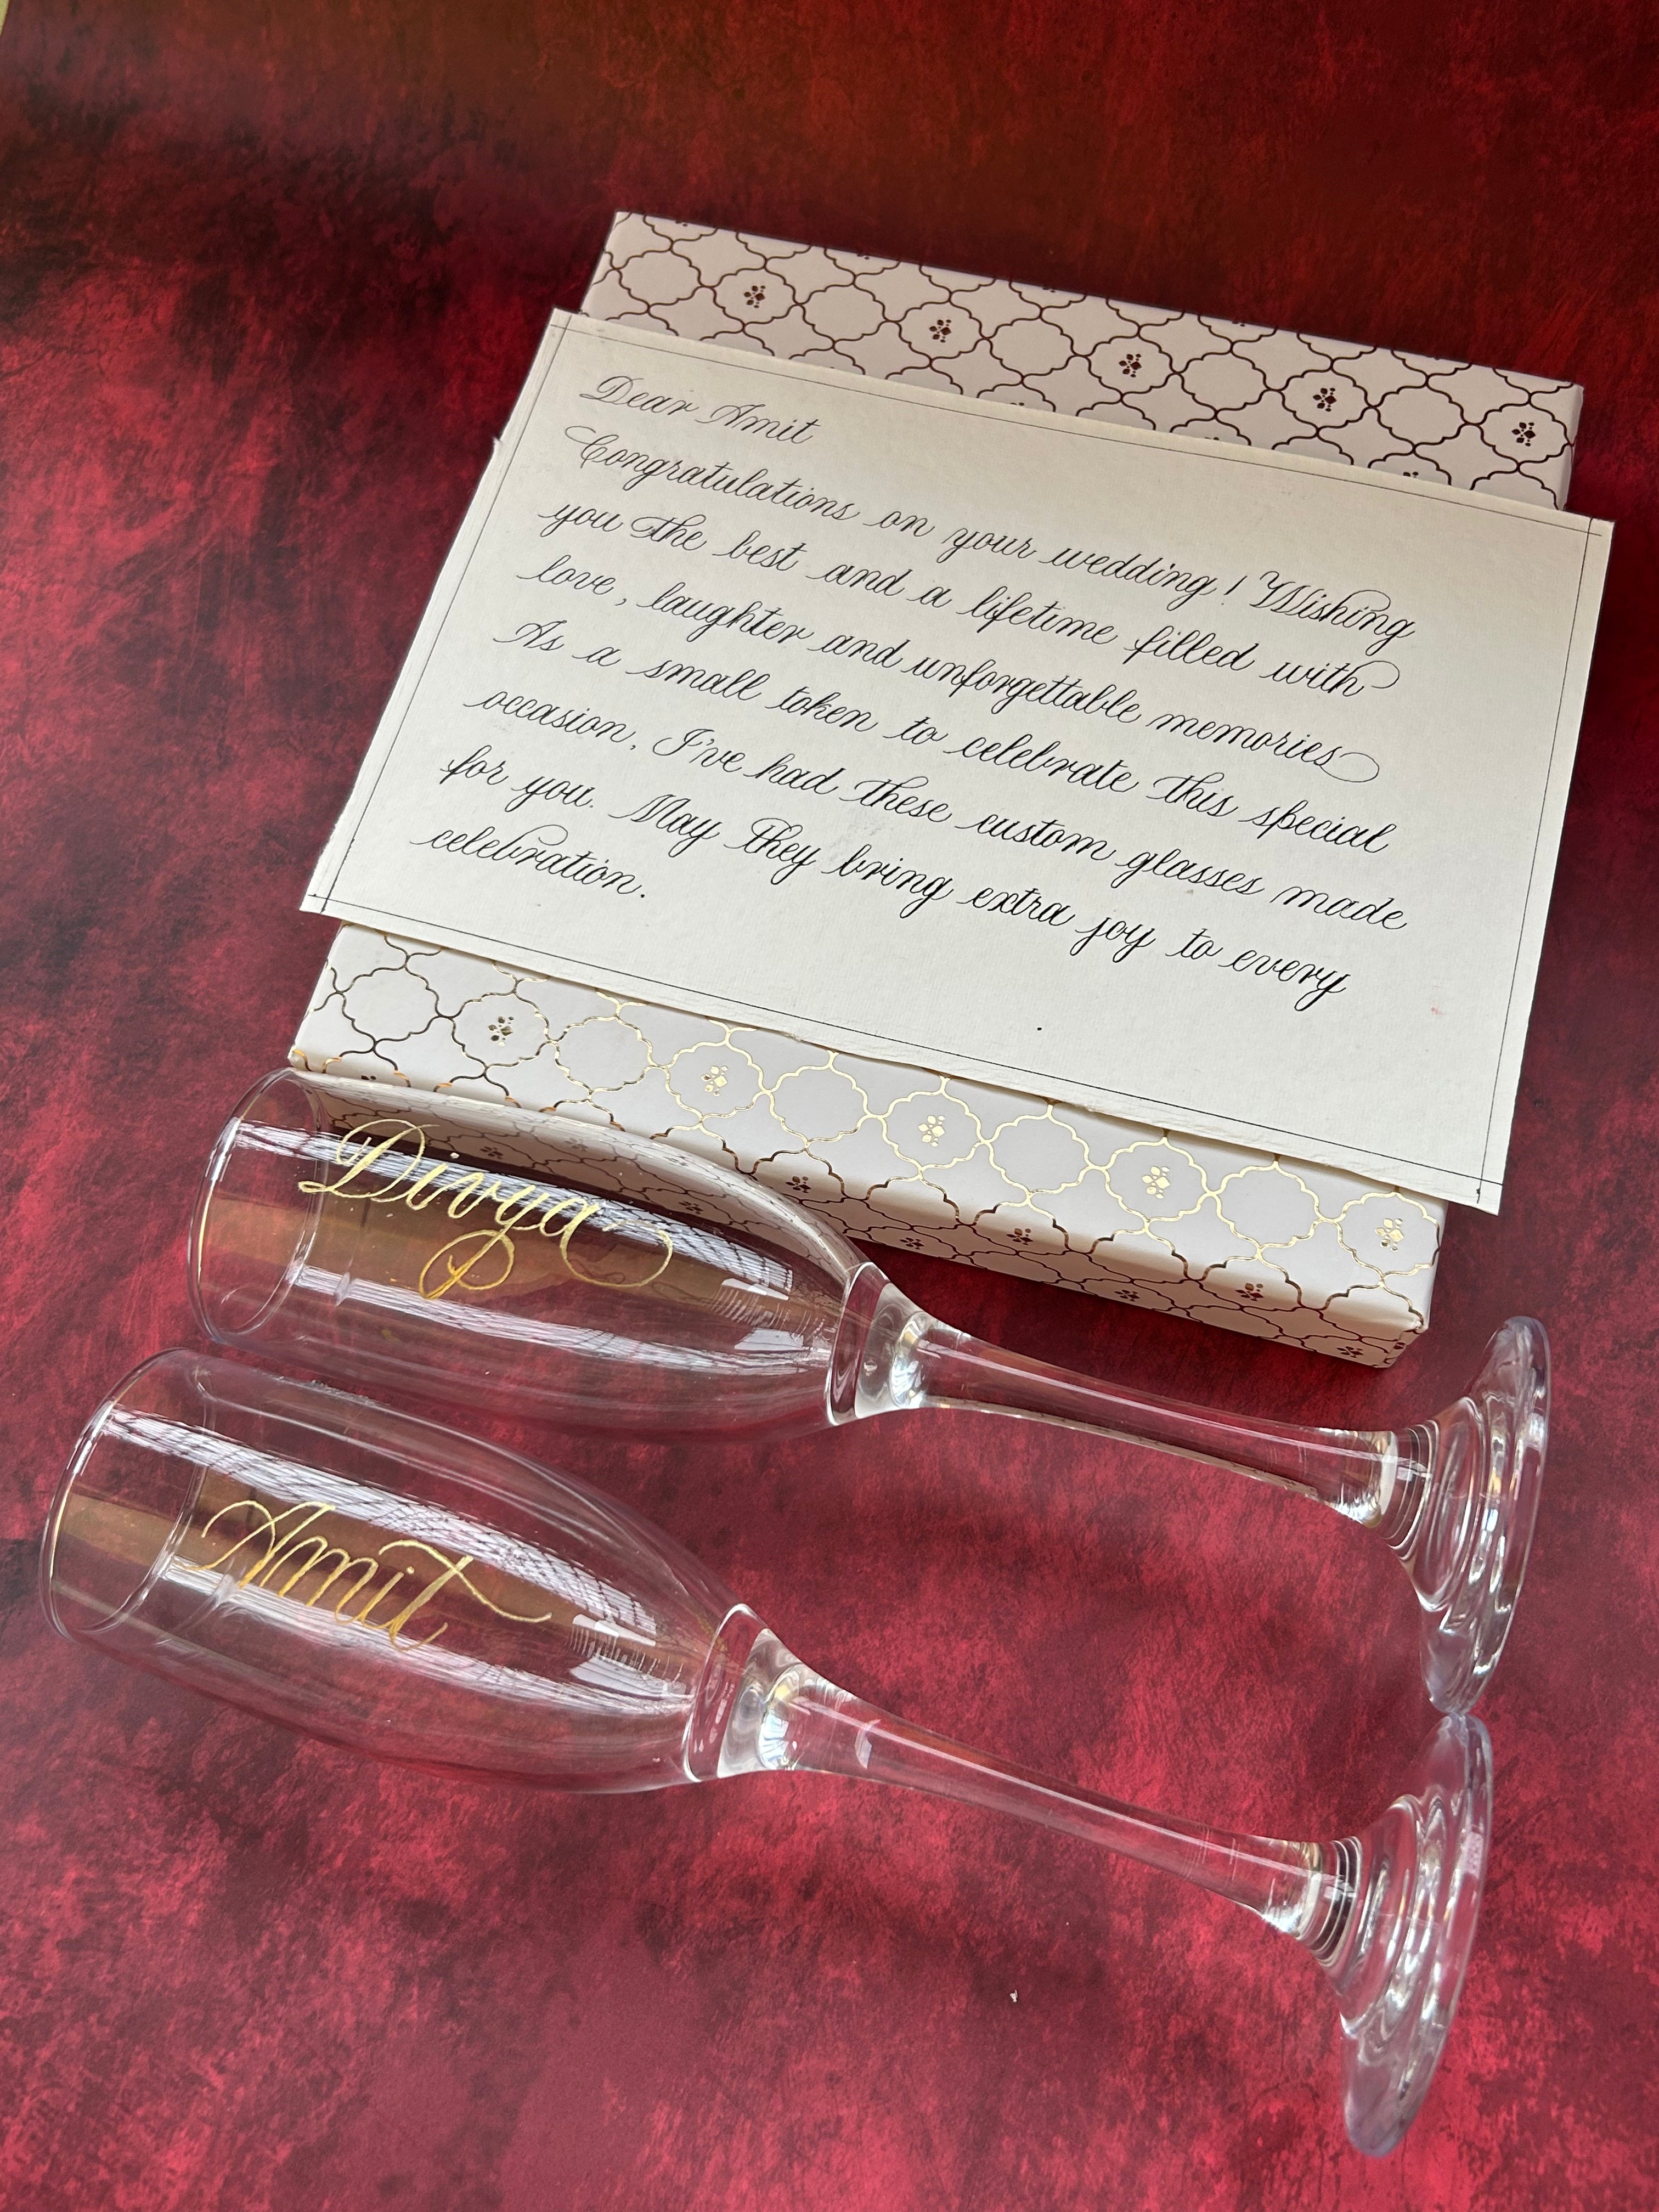 Dear Amit
Congratulations on your wedding! Wishing
you the best and a lifetime filled with
love, laughter and unforgettable memories
As a small token to celebrate this special
occasion, I've had these custom glasses made
for you. May they bring extra joy to every
celebration.
Divya
Amit